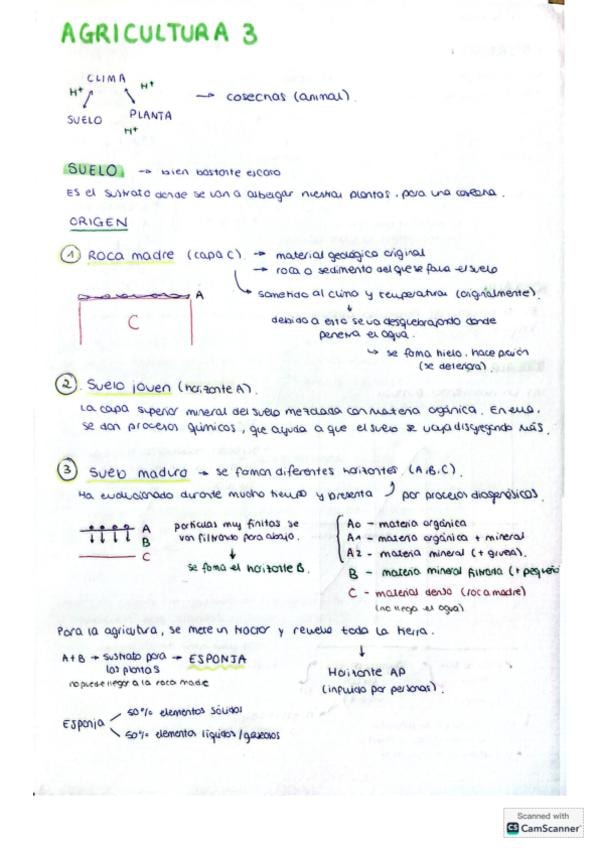 AGRICULTURA 3
CLIMA
H+ H+
→ cosechas (animal).
SUELO PLANTA
H+
SUELO → bien bastante escaso
Es el sustrato donde se van a albergar nuestras plantas. para una cosecha.
ORIGEN
1 Roca madre (capa C). → material geológico original
→ roca o sedimento del que se forma el suelo
A
C
→ sometido al clima y temperaturas (originalmente).
↓
debido a esto se va desquebrajando donde
penetra el agua.
↳ se forma hielo. hace presión
(se deteriora).
2. Suelo joven (horizonte A).
La capa superior mineral del suelo mezclada con materia orgánica. En ella.
se dan procesos químicos, que ayuda a que el suelo se vaya disgregando más.
3 Suelo maduro → se forman diferentes horizontes. (A,B,C).
Ha evolucionado durante mucho tiempo y presenta por procesos diagenósicos.
A
B
C
partículas muy finitas se
van filtrando para abajo.
↓
se forma el horizonte B.
A0 - materia orgánica
A1 - materia orgánica + mineral
A2 - materia mineral (+ gruesa).
B - materia mineral filtrada (+ pequeña
C - material denso (roca madre)
(no llega el agua)
Para la agricultura, se mete un tractor y revuelve toda la tierra.
↓
A+B → sustrato para → ESPONJA
las plantas
no puede llegar a la roca madre
Horizonte AP
(influido por personas).
Esponja
50% elementos sólidos
50% elementos líquidos/gaseosos
Scanned with
CS CamScanner